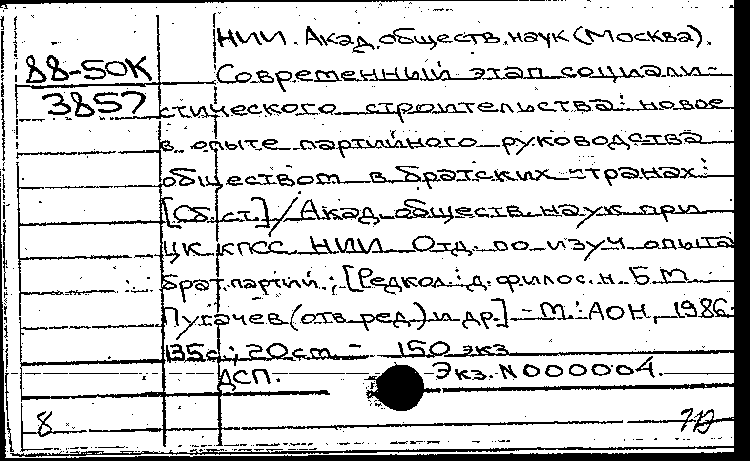 НИИ. Акад. обществ. наук (Москва).
88-50К
Современный этап социали-
3857
стического строительства: новое
в опыте партийного руководства
обществом в братских странах:
[Сб. ст.] / Акад. обществ. наук при
ЦК КПСС. НИИ. Отд. по изуч. опыта
брат. партий; [Редкол.: д. филос. н. Б.М.
Пугачев (отв. ред.) и др.] - М.: АОН, 1986-
135 с.; 20 см - 150 экз
ДСП. Экз. N 000004.
8